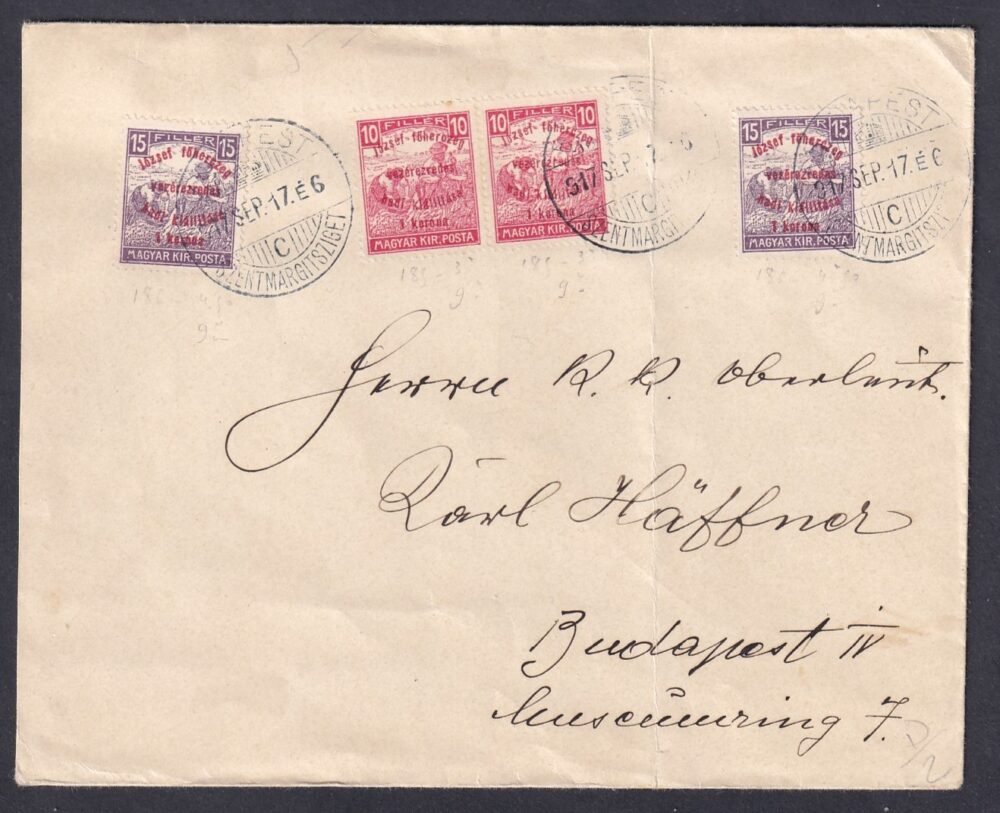 15 FILLER 15
József főherczeg
vezérezredes
hadi kiállítása
1 korona
MAGYAR KIR. POSTA
10 FILLER 10
József főherczeg
vezérezredes
hadi kiállítása
1 korona
MAGYAR KIR. POSTA
10 FILLER 10
József főherczeg
vezérezredes
hadi kiállítása
1 korona
MAGYAR KIR. POSTA
15 FILLER 15
József főherczeg
vezérezredes
hadi kiállítása
1 korona
MAGYAR KIR. POSTA
PEST
SEP. 17. É 6
C
SZENTMARGITSZIGET
917 SEP. 17
C
SZENTMARGI
PEST
917 SEP. 17. É 6
C
SZENTMARGITSZIGET
Herrn K. K. Oberleut.
Karl Häffner
Budapest IV
Museumring 7.